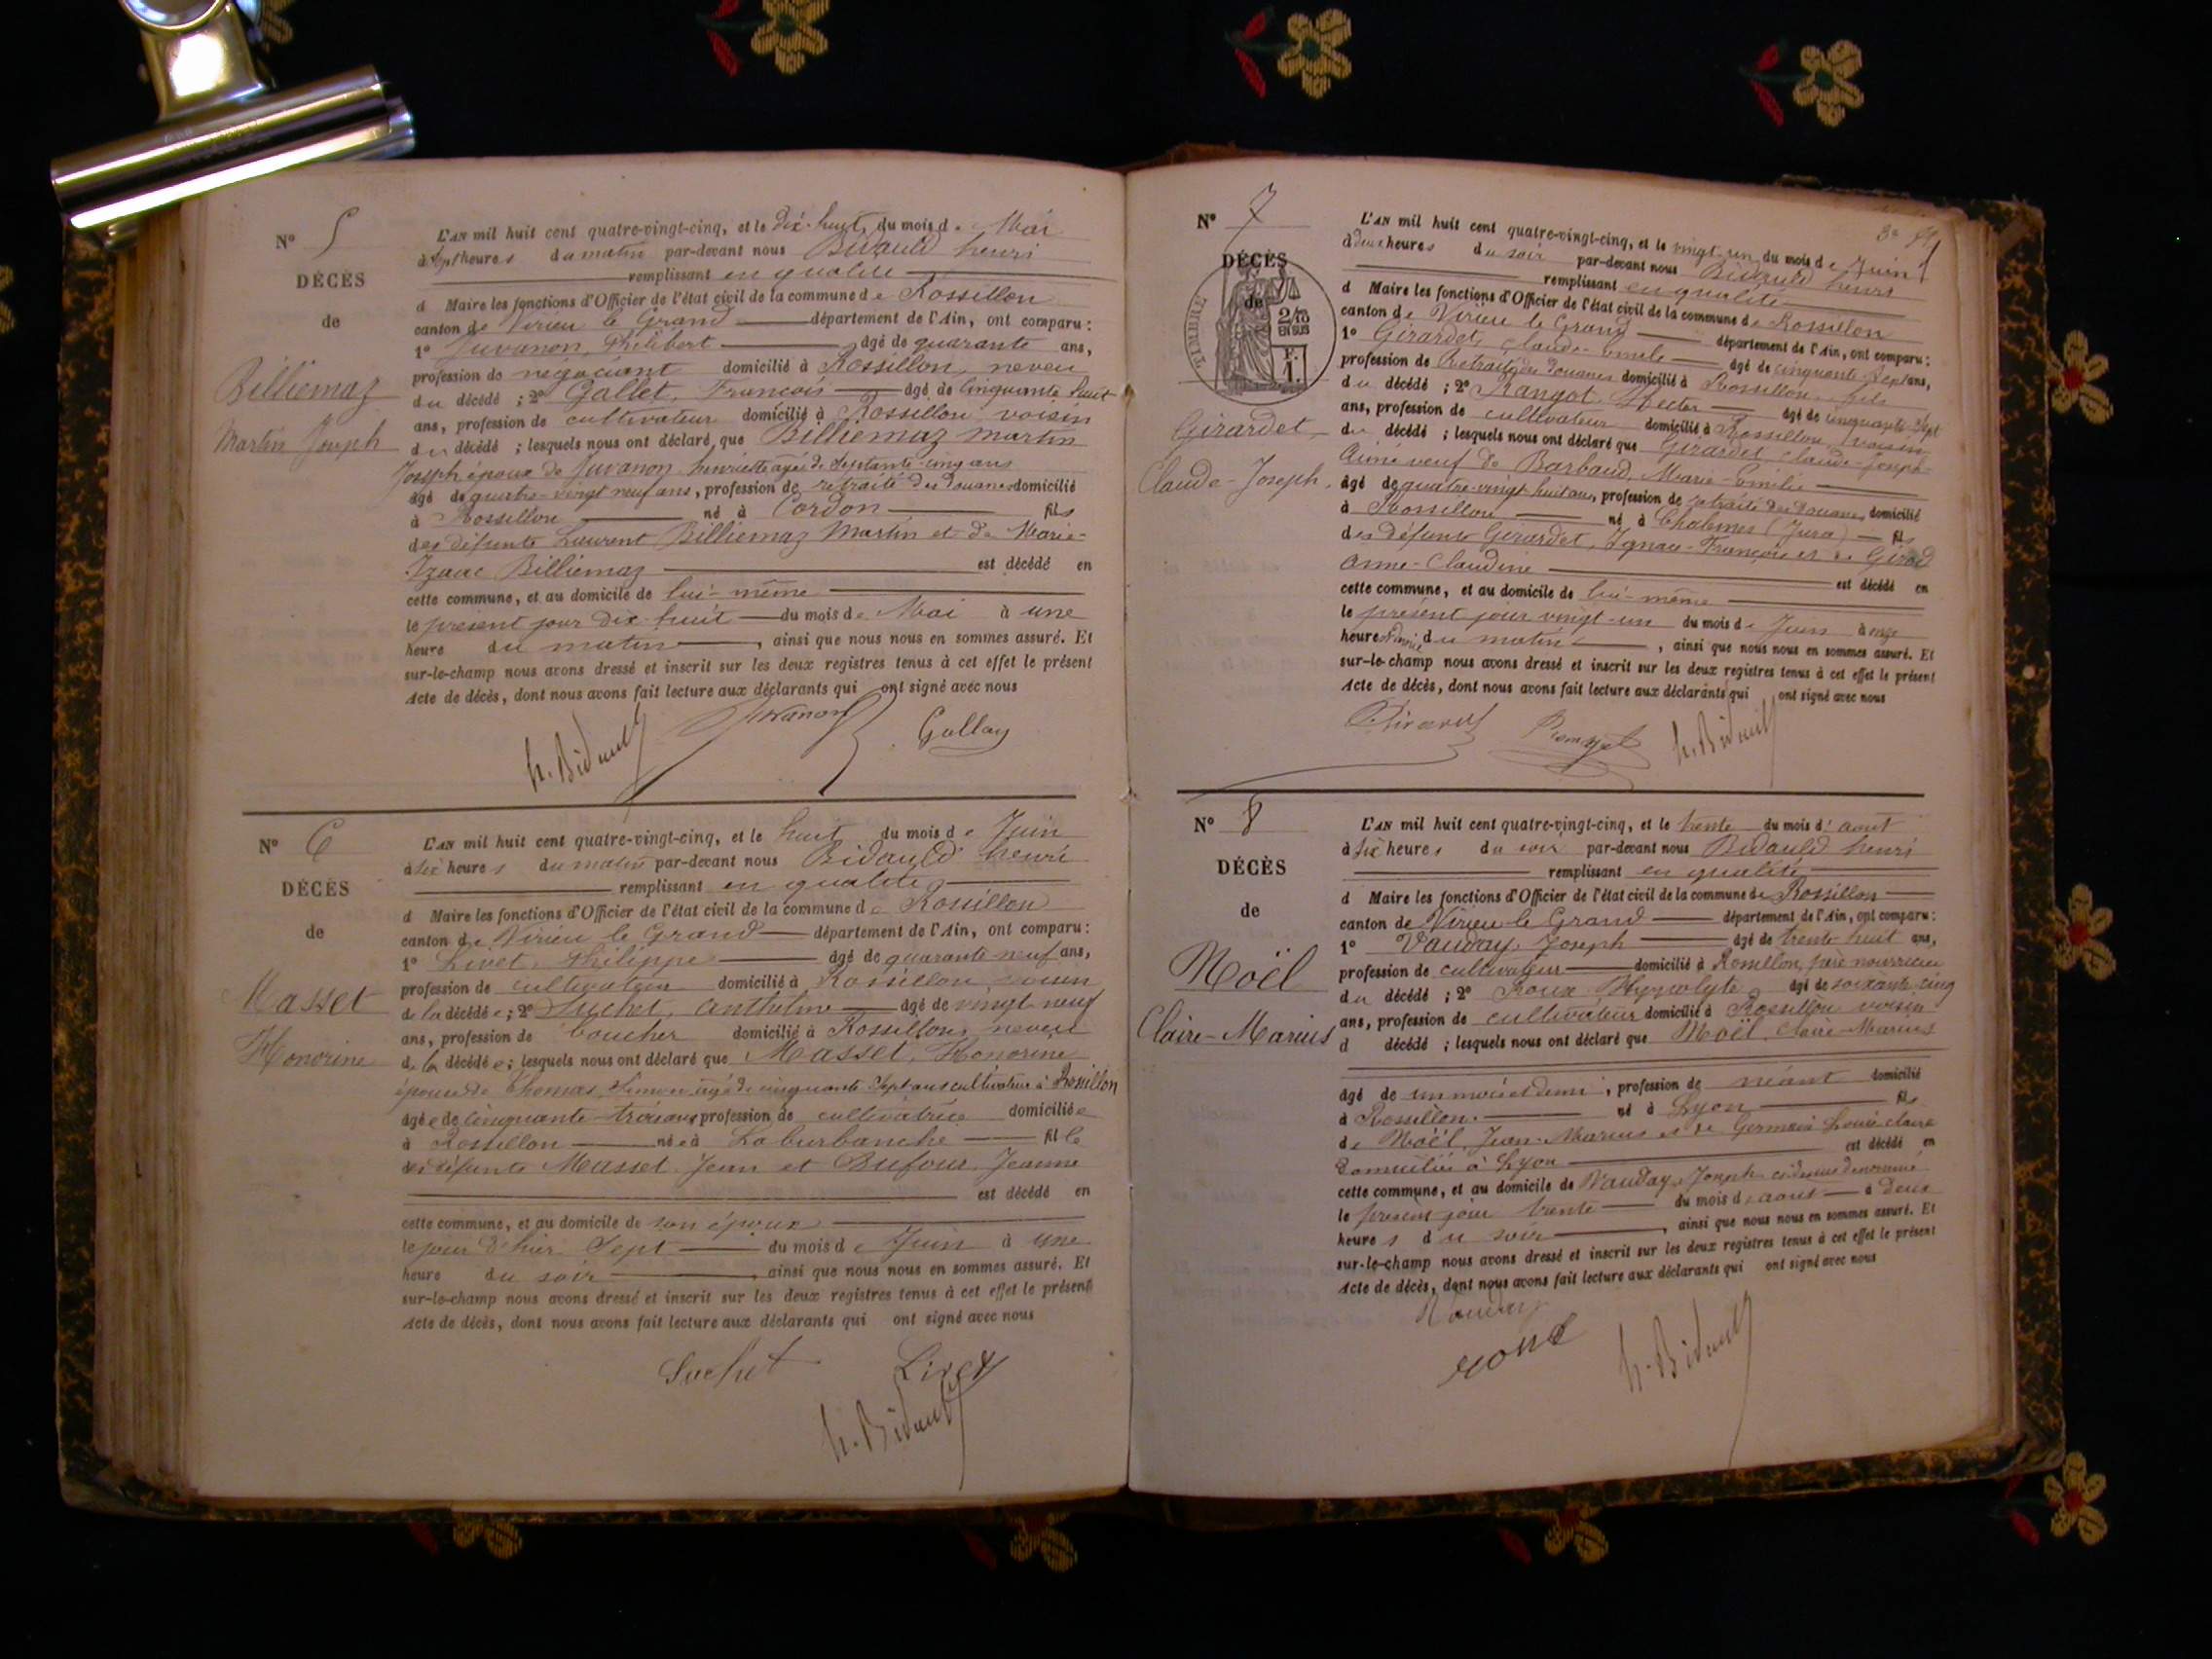 N° 5
DÉCÈS
de
Billiemaz
Martin Joseph
L'AN mil huit cent quatre-vingt-cinq, et le dix-huit du mois de Mai
à sept heures du matin par-devant nous Bidauld henri
remplissant en qualité
d Maire les fonctions d'Officier de l'état civil de la commune de Rossillon
canton de Virieu le Grand département de l'Ain, ont comparu :
1° Juvanon, Philibert âgé de quarante ans,
profession de négociant domicilié à Rossillon, neveu
du décédé ; 2° Gallet, François âgé de cinquante huit
ans, profession de cultivateur domicilié à Rossillon voisin
du décédé ; lesquels nous ont déclaré que Billiemaz martin
Joseph époux de Juvanon henriette agée de septante-cinq ans
âgé de quatre-vingt neuf ans, profession de retraité des douanes domicilié
à Rossillon né à Cordon fils
des défunts Laurent Billiemaz Martin et de Marie-
Izaac Billiemaz est décédé en
cette commune, et au domicile de lui-même
le présent jour dix huit du mois de Mai à une
heure du matin, ainsi que nous nous en sommes assuré. Et
sur-le-champ nous avons dressé et inscrit sur les deux registres tenus à cet effet le présent
Acte de décès, dont nous avons fait lecture aux déclarants qui ont signé avec nous
h. Bidauld Juvanon Gallay
N° 6
DÉCÈS
de
Masset
Honorine
L'AN mil huit cent quatre-vingt-cinq, et le huit du mois de Juin
à six heures du matin par-devant nous Bidauld henri
remplissant en qualité
d Maire les fonctions d'Officier de l'état civil de la commune de Rossillon
canton de Virieu le Grand département de l'Ain, ont comparu :
1° Livet, Philippe âgé de quarante neuf ans,
profession de cultivateur domicilié à Rossillon voisin
de la décédée ; 2° Suchet, anthelme âgé de vingt neuf
ans, profession de boucher domicilié à Rossillon, neveu
de la décédée ; lesquels nous ont déclaré que Masset, Honorine
épouse de Thomas, Simon agé de cinquante sept ans cultivateur à Rossillon
âgée de cinquante-trois ans profession de cultivatrice domiciliée
à Rossillon née à La burbanche fille
des défunts Masset Jean et Dufour Jeanne
est décédé en
cette commune, et au domicile de son époux
le jour d'hier Sept du mois de Juin à une
heure du soir, ainsi que nous nous en sommes assuré. Et
sur-le-champ nous avons dressé et inscrit sur les deux registres tenus à cet effet le présent
Acte de décès, dont nous avons fait lecture aux déclarants qui ont signé avec nous
Suchet Livet
h. Bidauld
N° 7
DÉCÈS
de
TIMBRE
2/10 EN SUS
F. 1.
Girardet
Claude-Joseph
L'AN mil huit cent quatre-vingt-cinq, et le vingt-un du mois de Juin
à deux heures du soir par-devant nous Bidauld henri
remplissant en qualité
d Maire les fonctions d'Officier de l'état civil de la commune de Rossillon
canton de Virieu le Grand département de l'Ain, ont comparu :
1° Girardet, claude-emile âgé de cinquante-sept ans,
profession de Retraité des douanes domicilié à Rossillon, fils
du décédé ; 2° Hector âgé de cinquante sept
ans, profession de cultivateur domicilié à Rossillon voisin
du décédé ; lesquels nous ont déclaré que Girardet claude-joseph
Aimé veuf de Barbaud, Marie-Emilie
âgé de quatre-vingt-huit ans, profession de retraité des douanes domicilié
à Rossillon né à (Jura) fils
des défunts Girardet, Ignace-François et de Girod
anne-Claudine est décédé en
cette commune, et au domicile de lui-même
le présent jour vingt-un du mois de Juin à onze
heures ½ du matin, ainsi que nous nous en sommes assuré. Et
sur-le-champ nous avons dressé et inscrit sur les deux registres tenus à cet effet le présent
Acte de décès, dont nous avons fait lecture aux déclarants qui ont signé avec nous
h. Bidauld
N° 8
DÉCÈS
de
Noël
Claire-Marius
L'AN mil huit cent quatre-vingt-cinq, et le trente du mois d'aout
à six heures du soir par-devant nous Bidauld henri
remplissant en qualité
d Maire les fonctions d'Officier de l'état civil de la commune de Rossillon
canton de Virieu le Grand département de l'Ain, ont comparu :
1° Vauday, Joseph âgé de trente-huit ans,
profession de cultivateur domicilié à Rossillon, père nourricier
du décédé ; 2° Roux Hyppolyte âgé de soixante cinq
ans, profession de cultivateur domicilié à Rossillon voisin
d décédé ; lesquels nous ont déclaré que Noël, Claire-Marius
âgé de un mois et demi, profession de néant domicilié
à Rossillon né à Lyon fils
de Noël, Jean-Marius et de Germain Louise claire
domiciliés à Lyon est décédé en
cette commune, et au domicile de Vauday, Joseph ci-dessus dénommé
le présent jour trente du mois d'aout à deux
heures du soir, ainsi que nous nous en sommes assuré. Et
sur-le-champ nous avons dressé et inscrit sur les deux registres tenus à cet effet le présent
Acte de décès, dont nous avons fait lecture aux déclarants qui ont signé avec nous
Vauday
roux h. Bidauld